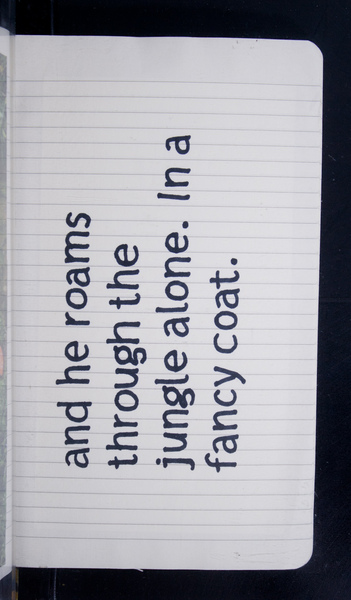 and he roams
through the
jungle alone. In a
fancy coat.